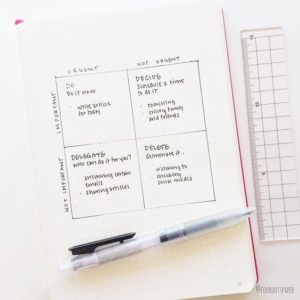 URGENT
NOT URGENT
IMPORTANT
DO
Do it now
write article
for today
DECIDE
Schedule a time
to do it
• exercising
• calling family
and friends
NOT IMPORTANT
DELEGATE
who can do it for you?
answering certain
emails
• sharing articles
DELETE
Eliminate it.
• listening to
• checking
social media